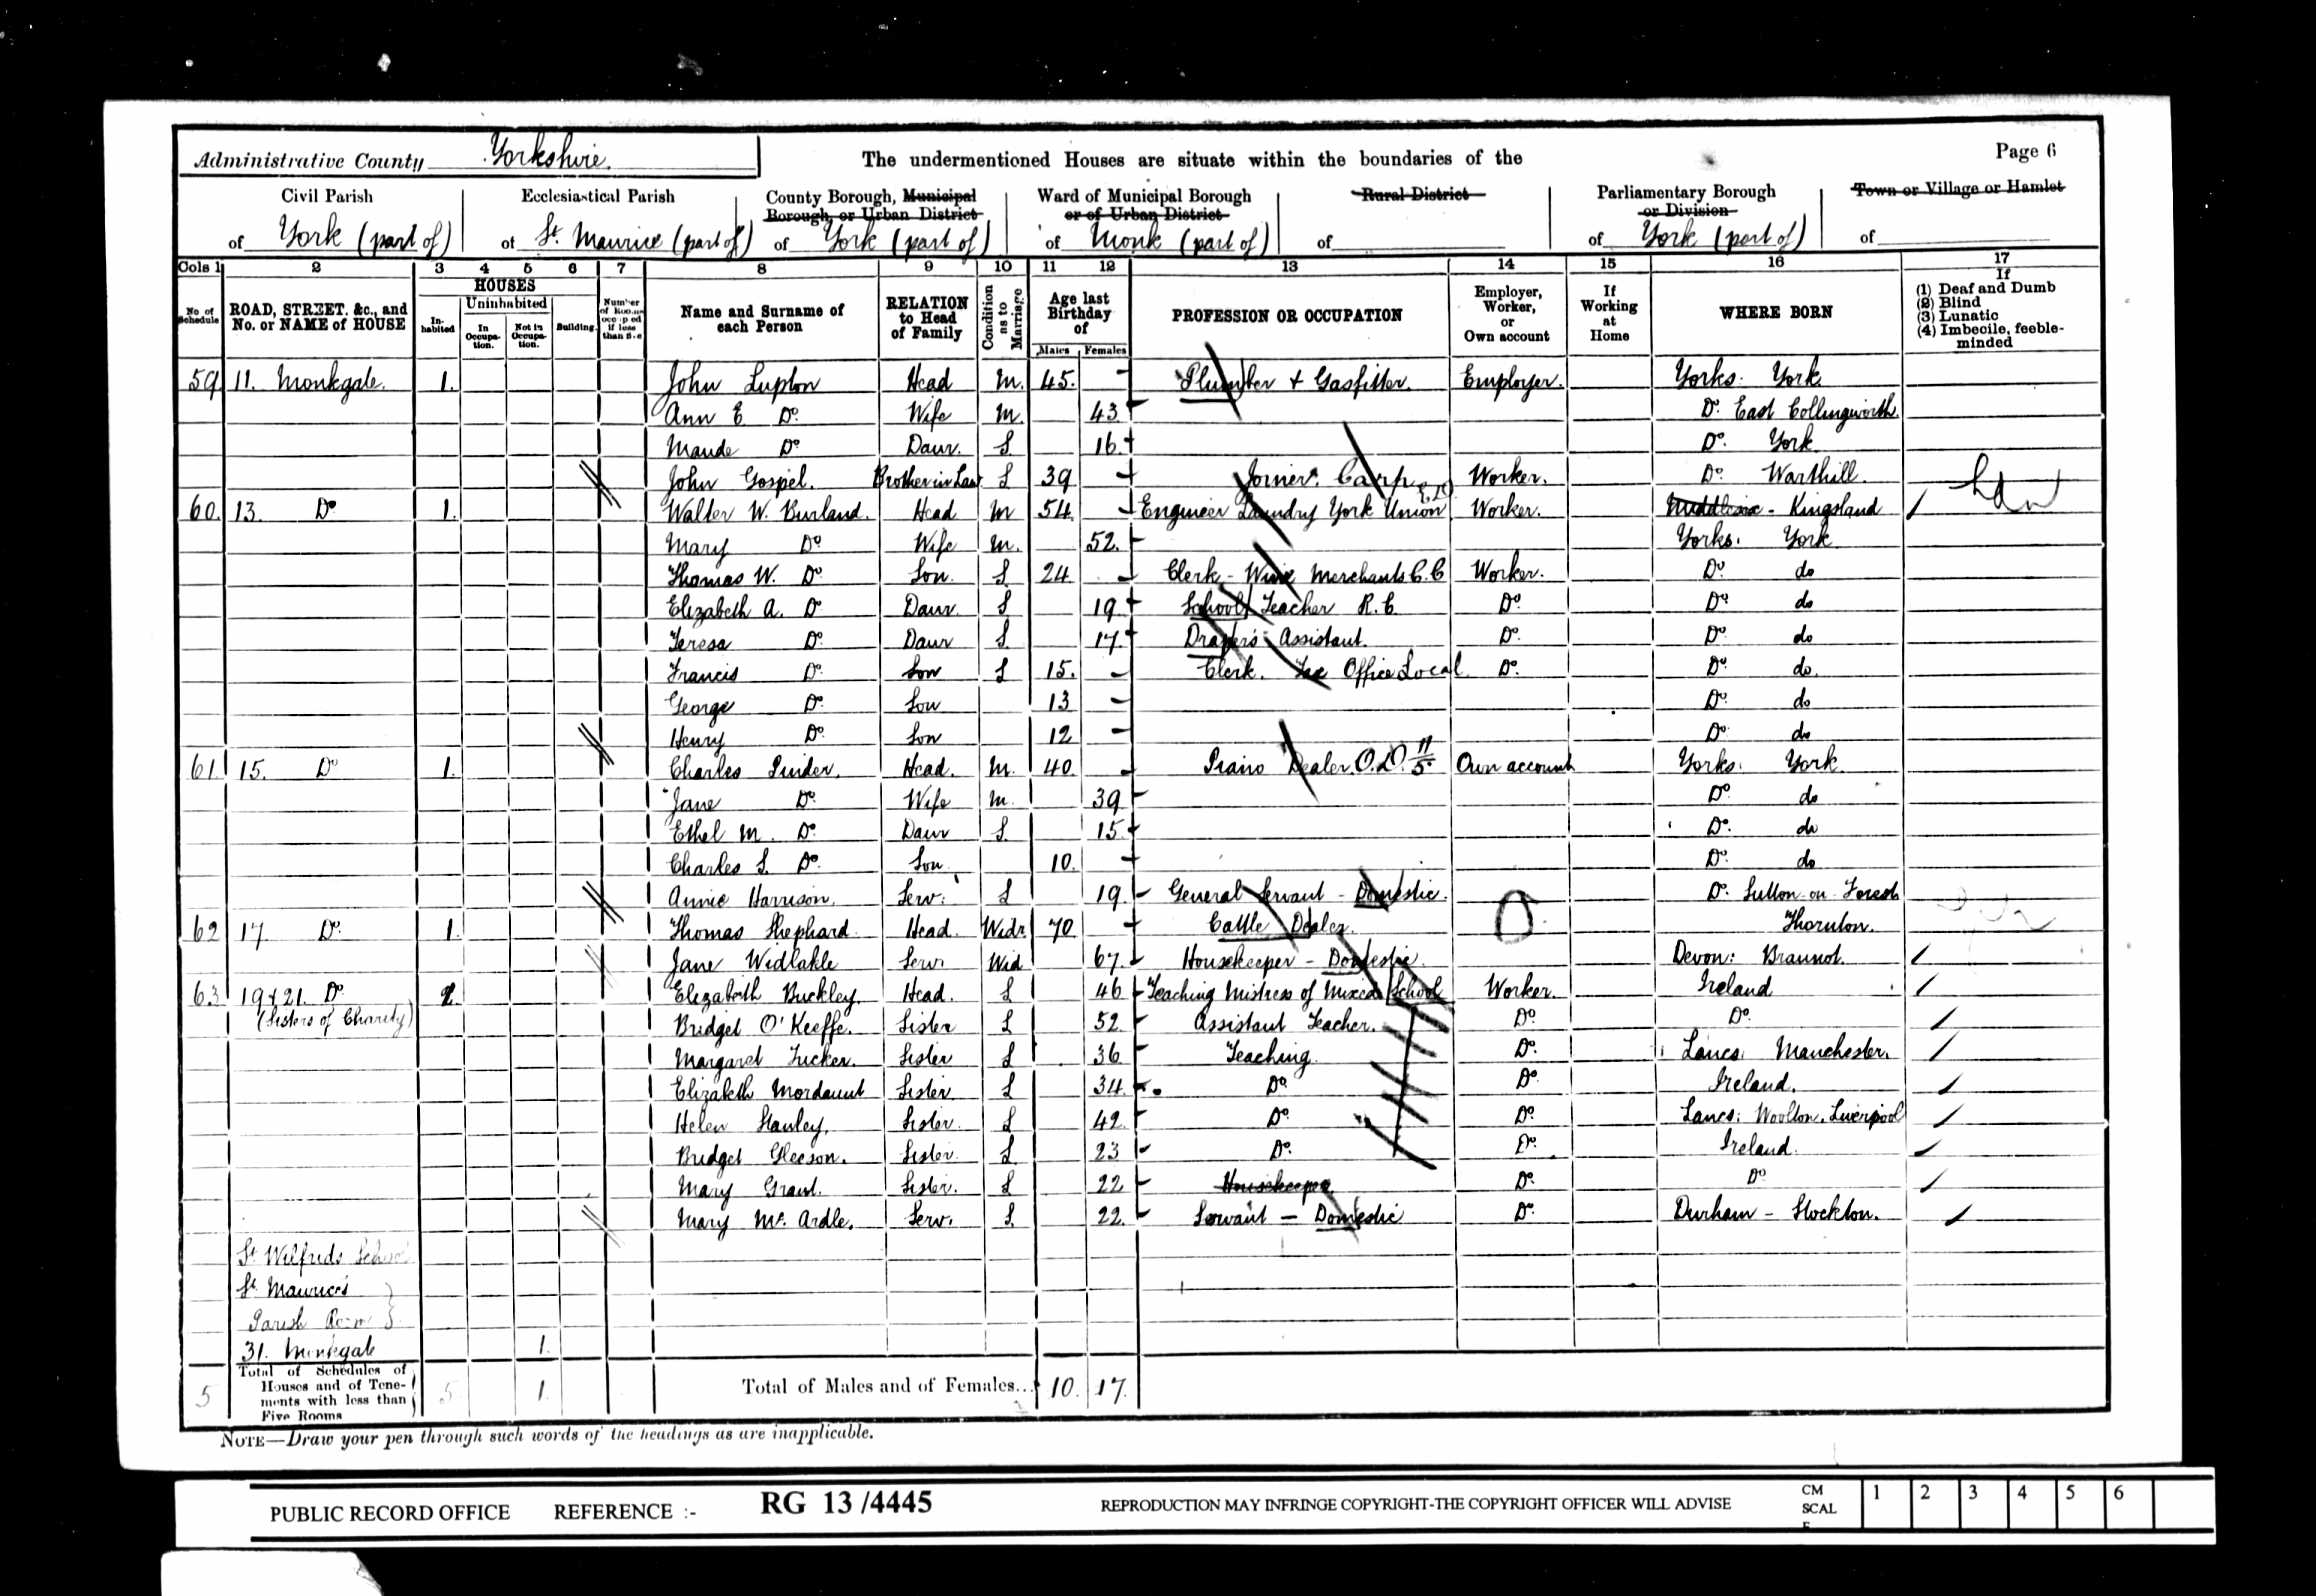 Administrative County Yorkshire.
The undermentioned Houses are situate within the boundaries of the
Page 6
Civil Parish of York (part of)
Ecclesiastical Parish of St. Maurice (part of)
County Borough, Municipal Borough, or Urban District of York (part of)
Ward of Municipal Borough or of Urban District of Monk (part of)
Rural District of
Parliamentary Borough or Division of York (part of)
Town or Village or Hamlet of
Cols 1 2 3 4 5 6 7 8 9 10 11 12 13 14 15 16 17
No of Schedule
ROAD, STREET, &c., and No. or NAME of HOUSE
HOUSES
In-habited
Uninhabited
In Occupa-tion.
Not in Occupa-tion.
Building.
Number of Rooms occupied if less than five
Name and Surname of each Person
RELATION to Head of Family
Condition as to Marriage
Age last Birthday of
Males Females
PROFESSION OR OCCUPATION
Employer, Worker, or Own account
If Working at Home
WHERE BORN
If
(1) Deaf and Dumb
(2) Blind
(3) Lunatic
(4) Imbecile, feeble-minded
59 11. Monkgate. 1. John Lupton Head M. 45. Plumber + Gasfitter. Employer. Yorks. York
Ann E Do. Wife M. 43 Do. East Collingworth
Maude Do Daur. S. 16 Do. York
John Gospel. Brother in Law S 39 Joiner. Carp. Worker. Do. Warthill.
60 13. Do 1. Walter W. Burland. Head M 54 Engineer Laundry York Union Worker. Middlesex - Kingsland
Mary Do Wife M. 52. Yorks. York
Thomas W. Do Son. S. 24 Clerk - Wine Merchants C.C Worker. Do. do
Elizabeth A. Do Daur S 19 School Teacher R.C. Do. Do do
Teresa Do. Daur S. 17 Draper's Assistant. Do. Do. do
Francis Do. Son S 15. Clerk. Tec Office Local Do. Do. do.
George Do. Son 13 Do. do
Henry Do. Son 12 Do. do
61 15. Do 1. Charles Pinder. Head. M. 40. Piano Dealer. O.D. 11/5 Own account Yorks. York
Jane Do. Wife M. 39 Do. do
Ethel M. Do. Daur S. 15 Do. do
Charles S. Do. Son 10. Do. do
Annie Harrison. Serv. S 19 General Servant - Domestic. Do. Sutton-on-Forest
62 17 Do. 1. Thomas Shephard Head. Widr. 70 Cattle Dealer. Thornton.
Jane Widlakle Serv. Wid 67. Housekeeper - Domestic. Devon: Braunot.
63 19 + 21. Do. 2 Elizabeth Buckley. Head. S 46 Teaching Mistress of Mixed School Worker. Ireland
(Sisters of Charity) Bridget O'Keeffe. Sister S 52. Assistant Teacher. Do. Do.
Margaret Tucker. Sister S 36 Teaching. Do. Lancs. Manchester.
Elizabeth Mordaunt Sister S 34 Do Do. Ireland.
Helen Stanley. Sister. S 42 Do. Do. Lancs: Woolton. Liverpool
Bridget Gleeson. Sister S 23 Do. Do. Ireland.
Mary Grant. Sister. S 22 Housekeeper Do. Do
Mary Mc. Ardle. Serv. S 22. Servant - Domestic Do. Durham - Stockton.
St. Wilfrids School
St. Maurice's
Parish Room
31. Monkgate 1.
5 Total of Schedules of Houses and of Tenements with less than Five Rooms 5 1 Total of Males and of Females... 10. 17.
NOTE—Draw your pen through such words of the headings as are inapplicable.
PUBLIC RECORD OFFICE REFERENCE :- RG 13 /4445 REPRODUCTION MAY INFRINGE COPYRIGHT-THE COPYRIGHT OFFICER WILL ADVISE CM SCALE 1 2 3 4 5 6